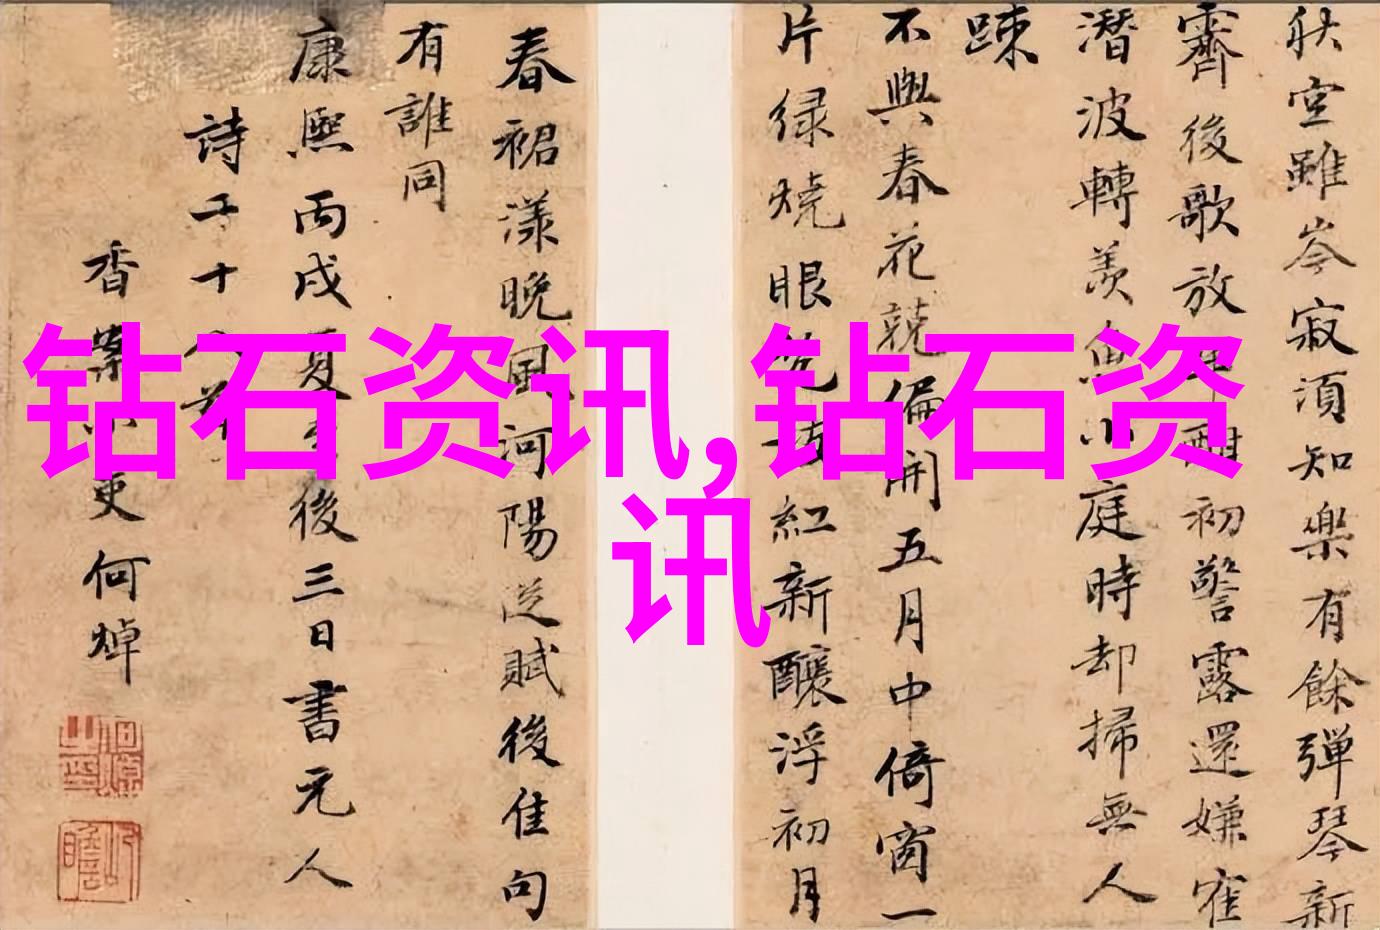 钻石资讯,钻石资
讯
秋空雖岑寂須知樂有餘彈琴新
霽後歌放酣初警露還嫌隺
潛波轉羨魚小庭時却掃無人
踈
不與春花競偏開五月中倚窗一
片緑燒眼枝紅新釀浮初月
春裙漾晚風河陽從賦後佳句
有誰同
康熙丙戌夏至後三日書元人
詩二十八首
香案小吏何焯